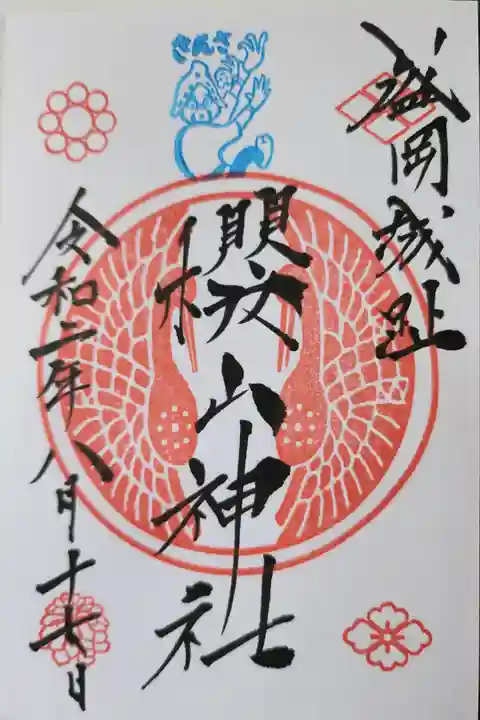 盛岡城址
さんさ
櫻山神社
令和二年八月十七日